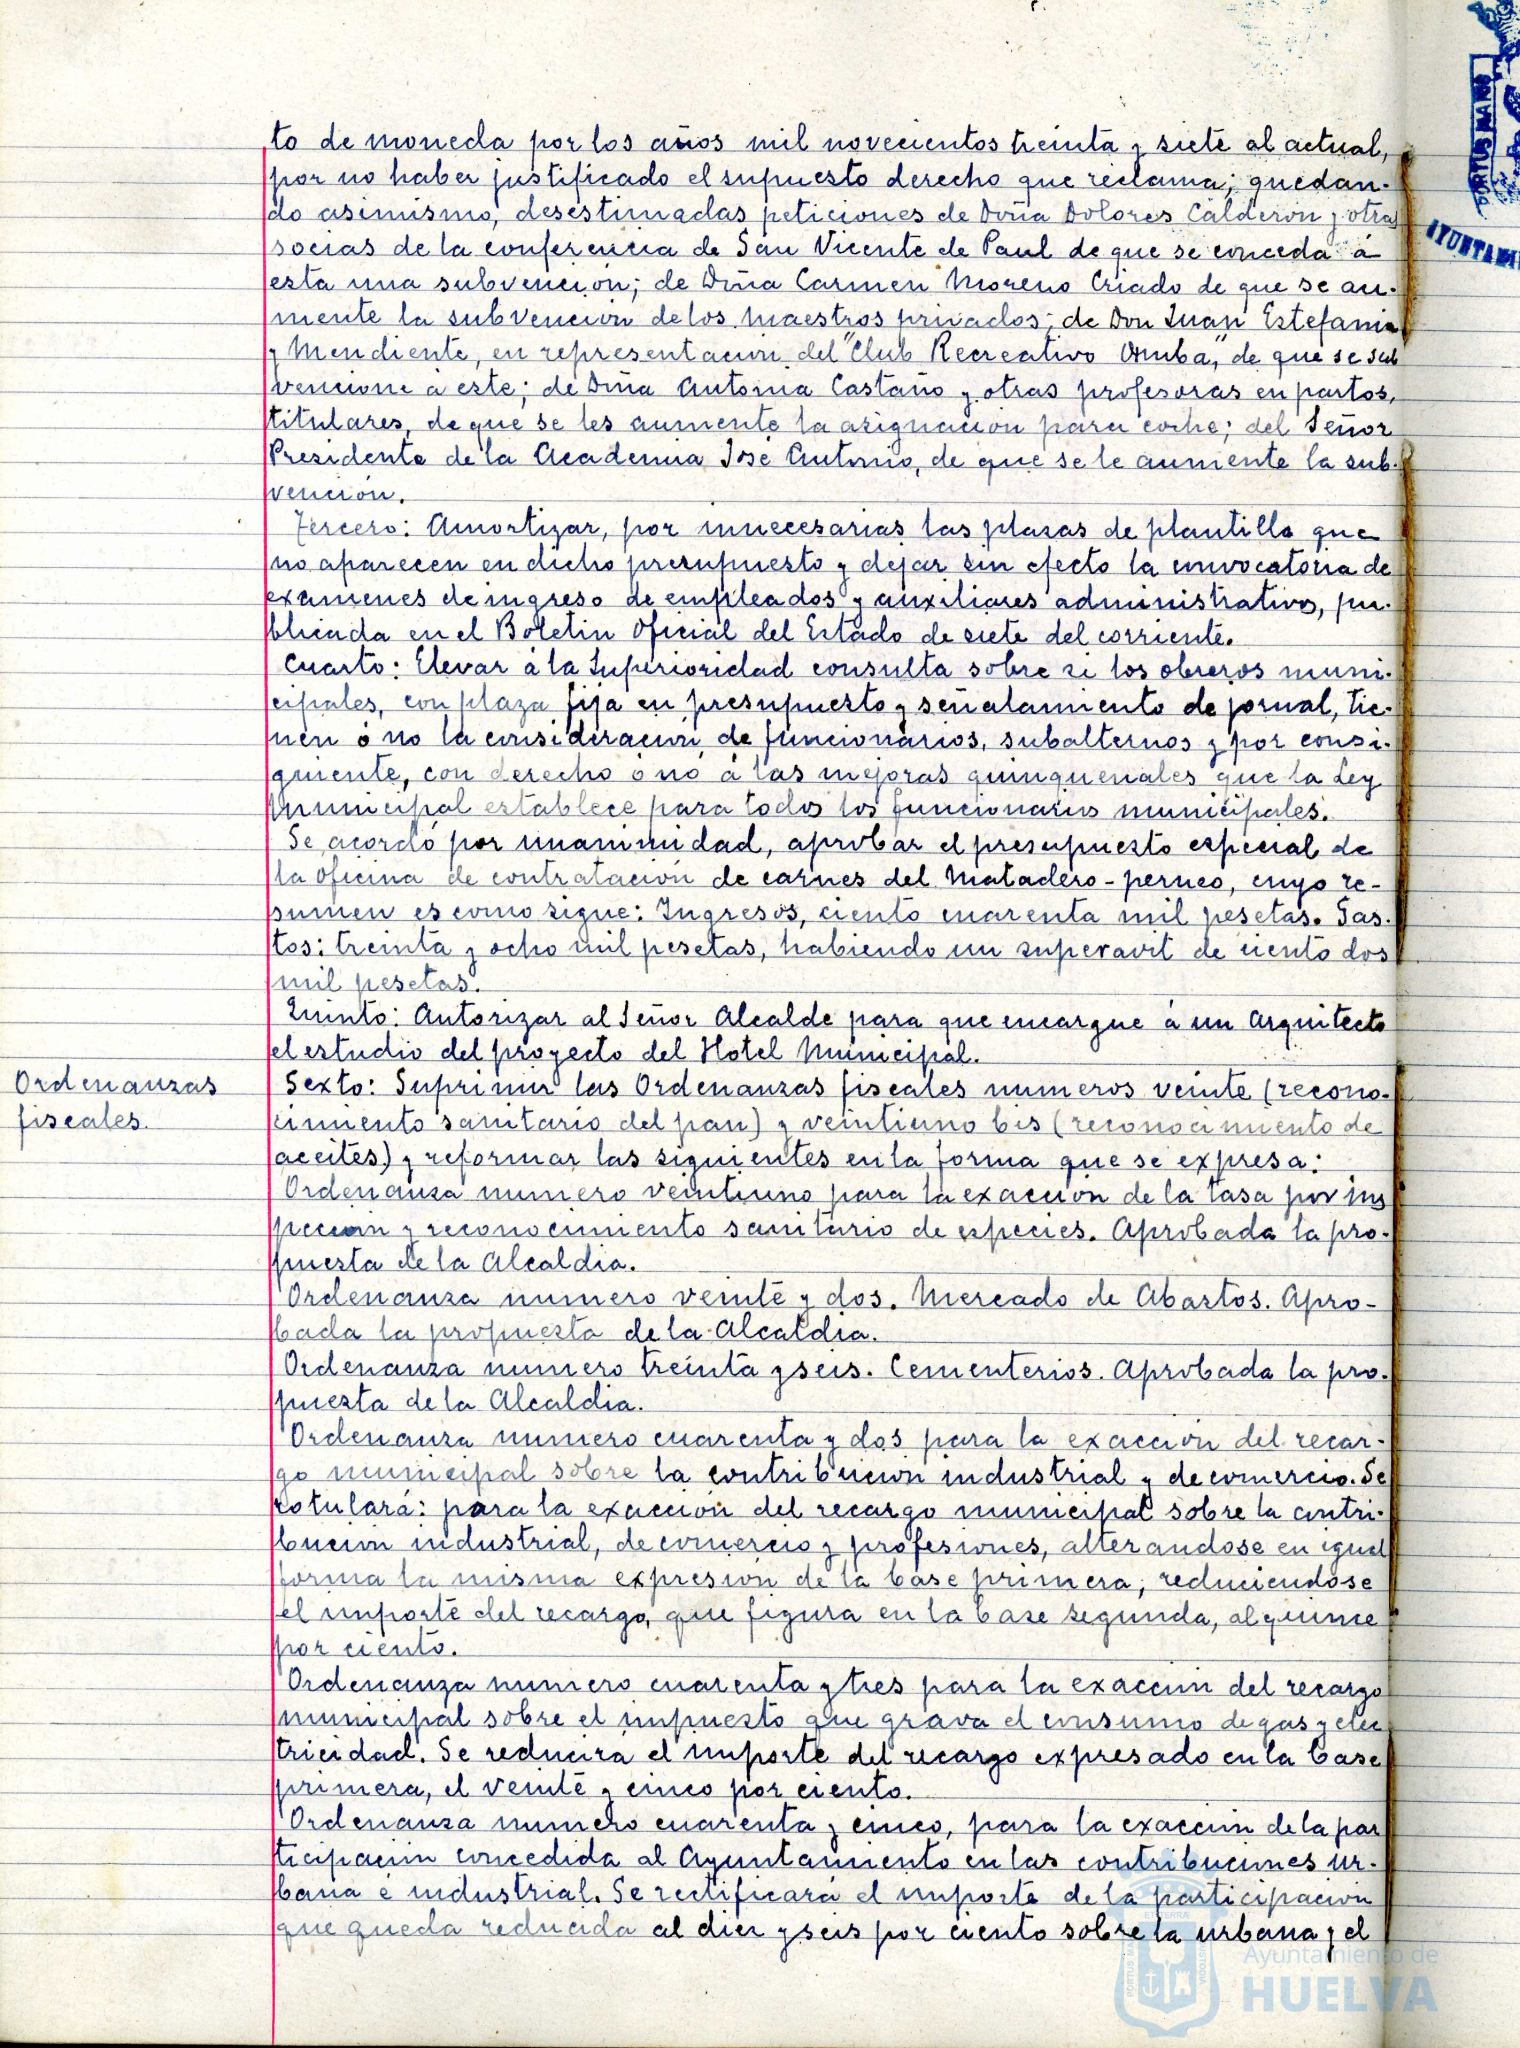 to de moneda por los años mil novecientos treinta y siete al actual,
por no haber justificado el supuesto derecho que reclama; quedan-
do asimismo, desestimadas peticiones de Doña Dolores Calderon y otras
socias de la conferencia de San Vicente de Paul de que se conceda a
esta una subvencion; de Doña Carmen Moreno Criado de que se au-
mente la subvencion de los maestros privados; de Don Juan Estefania
y Mendiente, en representacion del "Club Recreativo Onuba," de que se sub
vencione a este; de Doña Antonia Castaño y otras profesoras en partos,
titulares, de que se les aumente la asignacion para coche; del Señor
Presidente de la Academia Jose Antonio, de que se le aumente la sub-
vención.
Tercero: Amortizar, por innecesarias las plazas de plantilla que
no aparecen en dicho presupuesto y dejar sin efecto la convocatoria de
examenes de ingreso de empleados y auxiliares administrativos, pu-
blicada en el Boletin Oficial del Estado de siete del corriente.
Cuarto: Elevar á la Superioridad consulta sobre si los obreros muni-
cipales, con plaza fija en presupuesto y señalamiento de jornal, tie-
nen ó no la consideracion de funcionarios, subalternos y por consi-
guiente, con derecho ó no á las mejoras quinquenales que la Ley
Municipal establece para todos los funcionarios municipales.
Se acordó por unanimidad, aprobar el presupuesto especial de
la oficina de contratación de carnes del Matadero-perneo, cuyo re-
sumen es como sigue: Ingresos, ciento cuarenta mil pesetas. Gas-
tos: treinta y ocho mil pesetas, habiendo un superavit de ciento dos
mil pesetas.
Quinto: Autorizar al Señor Alcalde para que encargue á un Arquitecto
el estudio del proyecto del Hotel Municipal.
Ordenanzas
fiscales.
Sexto: Suprimir las Ordenanzas fiscales numeros veinte (recono-
cimiento sanitario del pan) y veintiuno bis (reconocimiento de
aceites) y reformar las siguientes en la forma que se expresa:
Ordenanza numero veintiuno para la exacción de la tasa por ins
peccion y reconocimiento sanitario de especies. Aprobada la pro-
puesta de la Alcaldia.
Ordenanza numero veinte y dos. Mercado de Abastos. Apro-
bada la propuesta de la Alcaldia.
Ordenanza numero treinta y seis. Cementerios. Aprobada la pro-
puesta de la Alcaldia.
Ordenanza numero cuarenta y dos para la exacción del recar-
go municipal sobre la contribucion industrial y de comercio. Se
rotulará: para la exacción del recargo municipal sobre la contri-
bucion industrial, de comercio y profesiones, alterandose en igual
forma la misma expresion de la base primera; reduciendose
el importe del recargo, que figura en la base segunda, al quince
por ciento.
Ordenanza numero cuarenta y tres para la exaccion del recargo
municipal sobre el impuesto que grava el consumo de gas y elec
tricidad. Se reducira el importe del recargo expresado en la base
primera, el veinte y cinco por ciento.
Ordenanza numero cuarenta y cinco, para la exaccion de la par
ticipacion concedida al Ayuntamiento en las contribuciones ur-
bana é industrial. Se rectificará el importe de la participacion
que queda reducida al diez y seis por ciento sobre la urbana y el
Ayuntamiento de
HUELVA